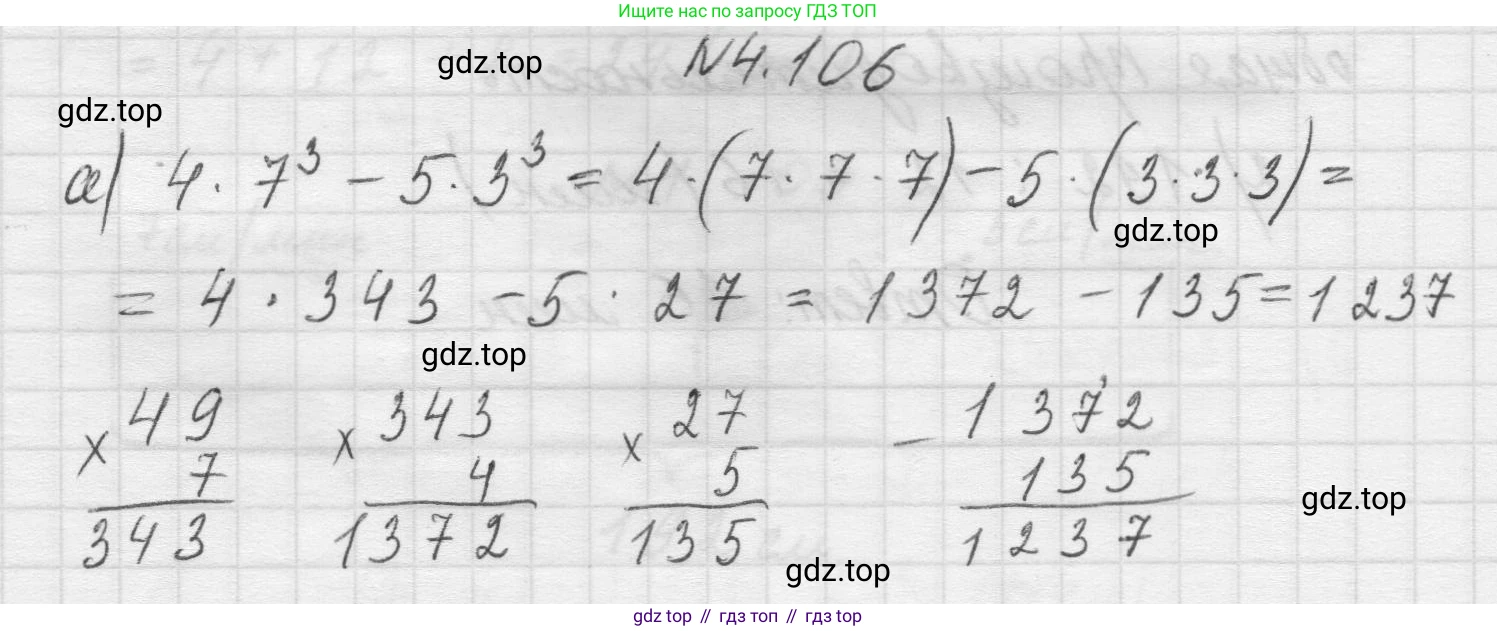 Ищите нас по запросу ГДЗ ТОП
gdz.top
№4.106
gdz.top
а) 4 · 7³ - 5 · 3³ = 4 · (7 · 7 · 7) - 5 · (3 · 3 · 3) =
gdz.top
= 4 · 343 - 5 · 27 = 1372 - 135 = 1237
gdz.top
× 49 × 343 × 27 - 1372
7 4 5 135
gdz.top
343 1372 135 1237
gdz.top
gdz top // гдз топ // gdz top